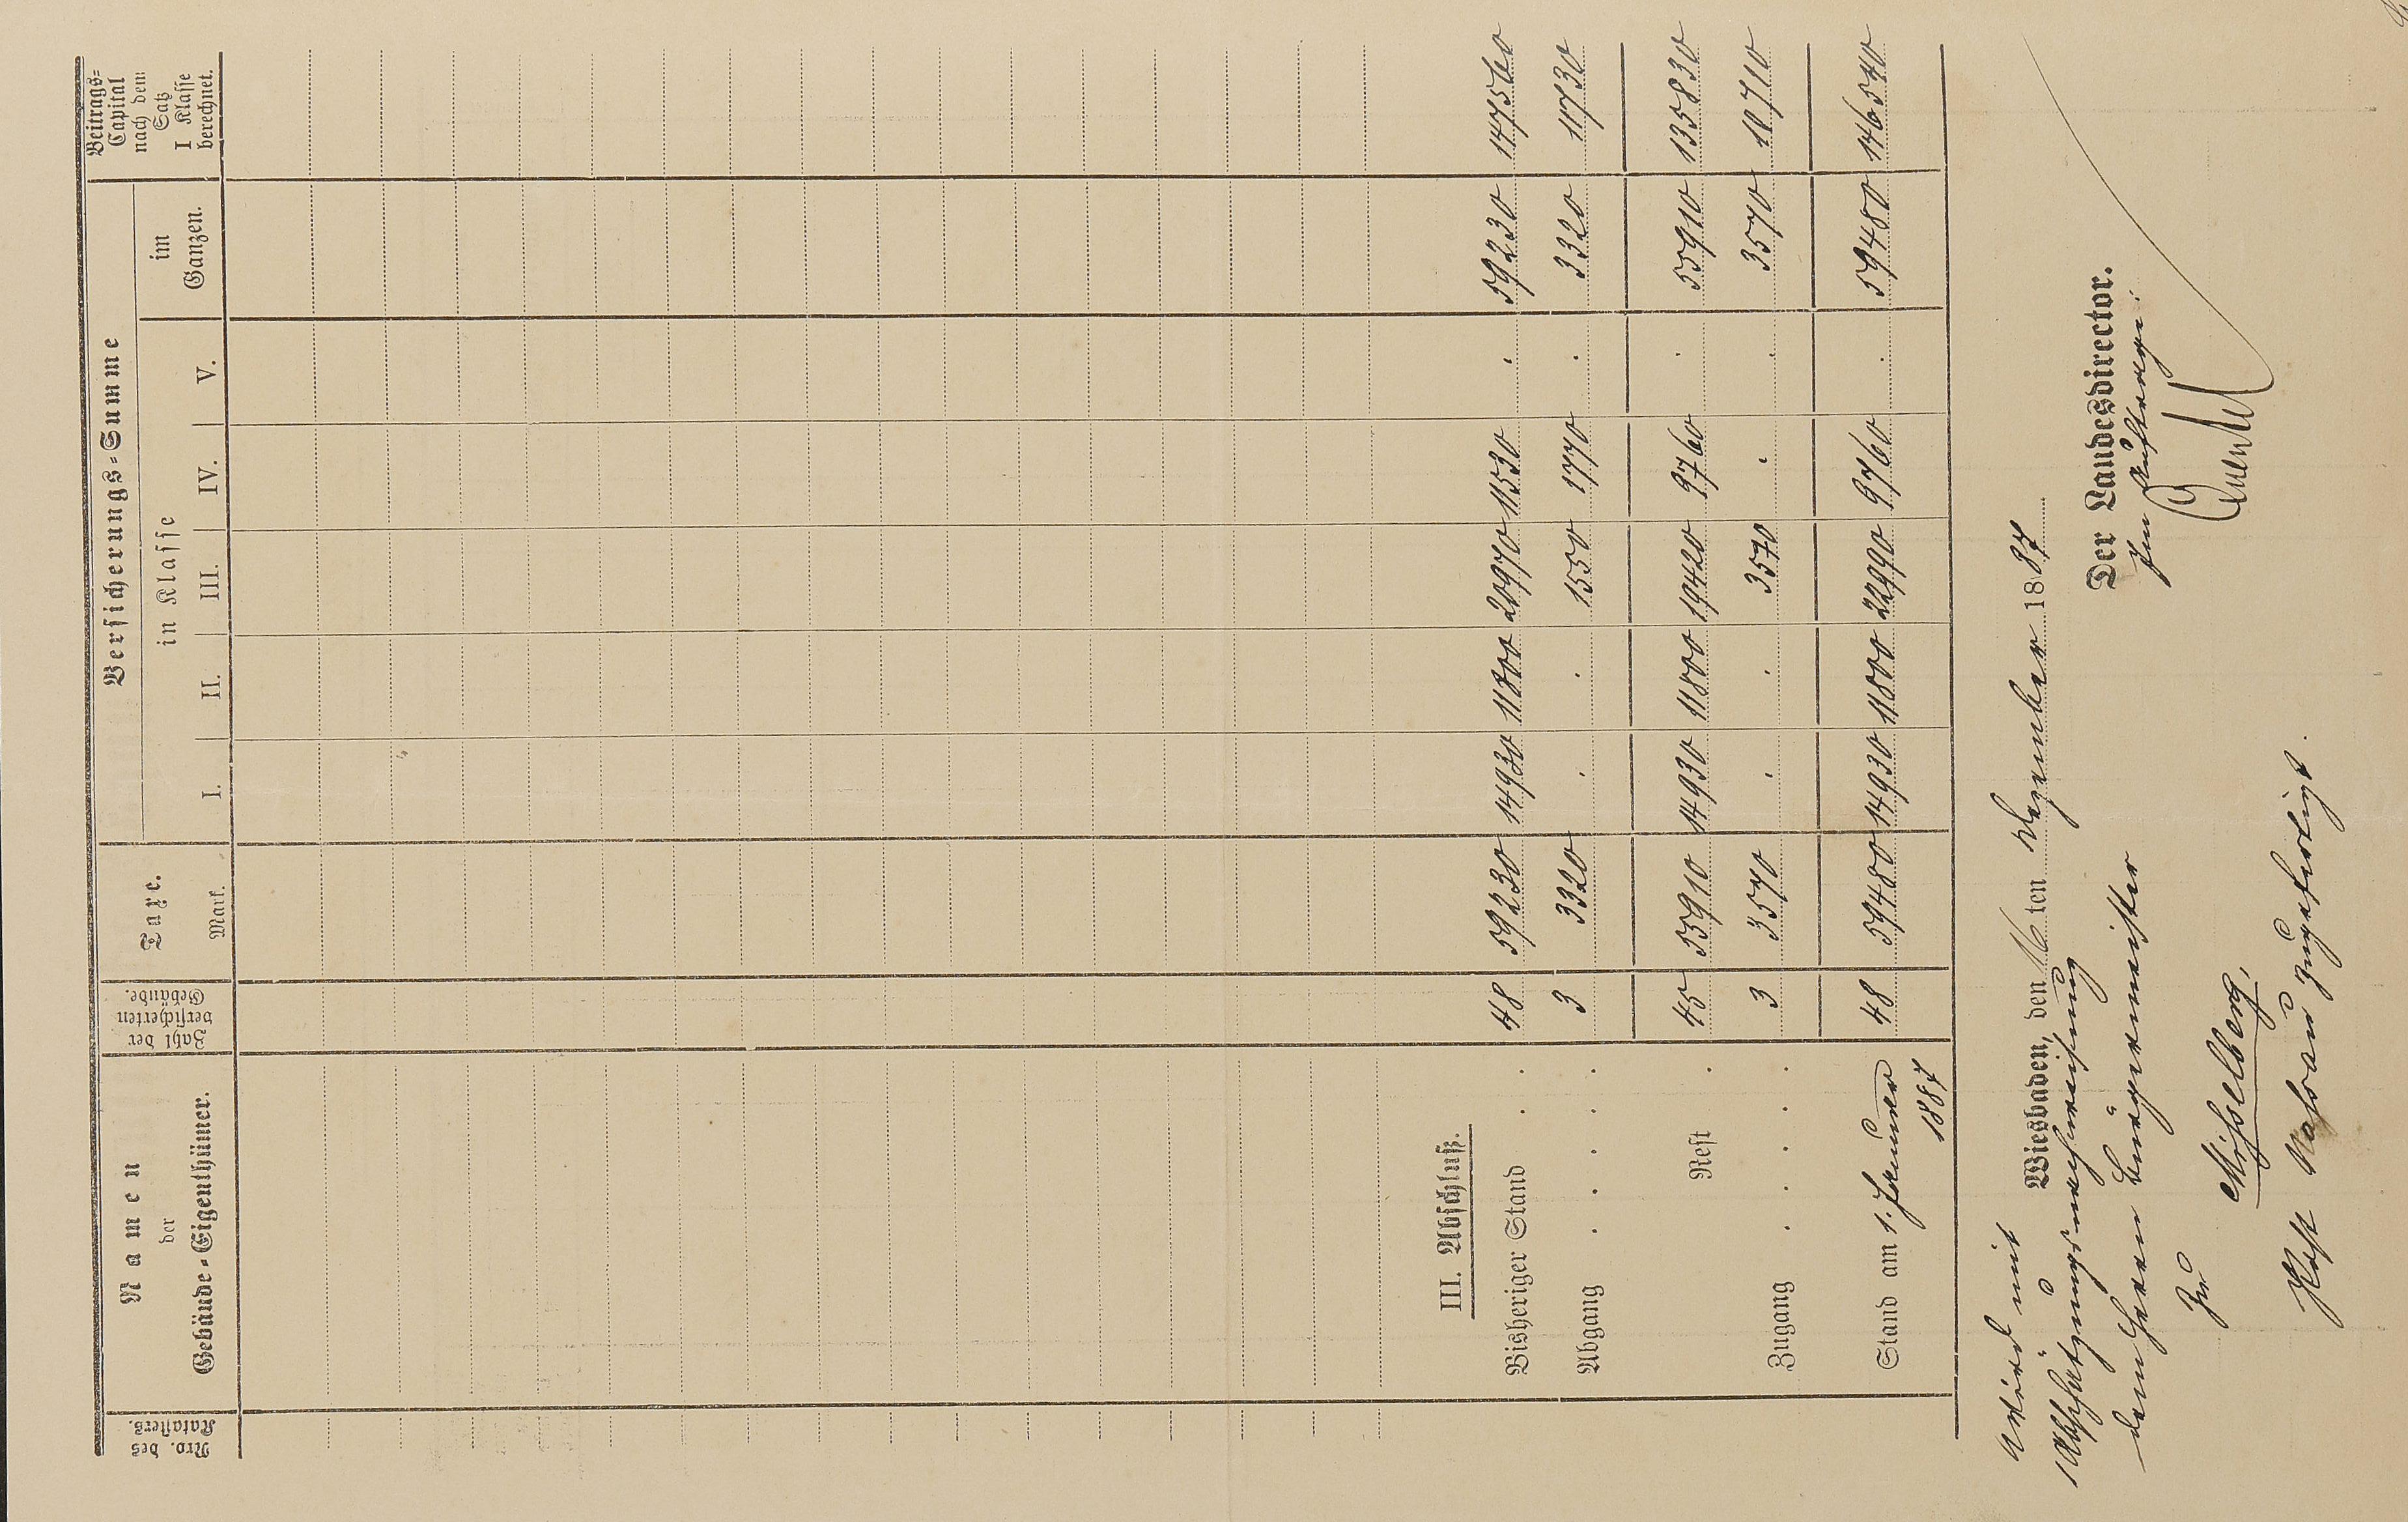 Nro. des
Katasters.
Namen
der
Gebäude-Eigenthümer.
Zahl der
versicherten
Gebäude.
Taxe.
Mark.
Versicherungs-Summe
in Klasse
I. II. III. IV. V.
im
Ganzen.
Beitrags-
Capital
nach dem
Satz
I Klasse
berechnet.
III. Abschluß.
Bisheriger Stand . . 48 59230 14930 11800 20970 11530 . 59230 147560
Abgang . . . . 3 3320 . . 1550 1770 . 3320 11730
Rest . 45 55910 14930 11800 19420 9760 . 55910 135830
Zugang . . . . 3 3570 . . 3570 . . 3570 10710
Stand am 1. Januar 48 59480 14930 11800 22990 9760 . 59480 146540
1887
Wiesbaden, den 16 ten Dezember 1887
wird mit
Abschätzungs
dem Herrn Bürgermeister
zu
Misselberg,
Post Nassau zugefertigt.
Der Landesdirector.
Im Auftrage: